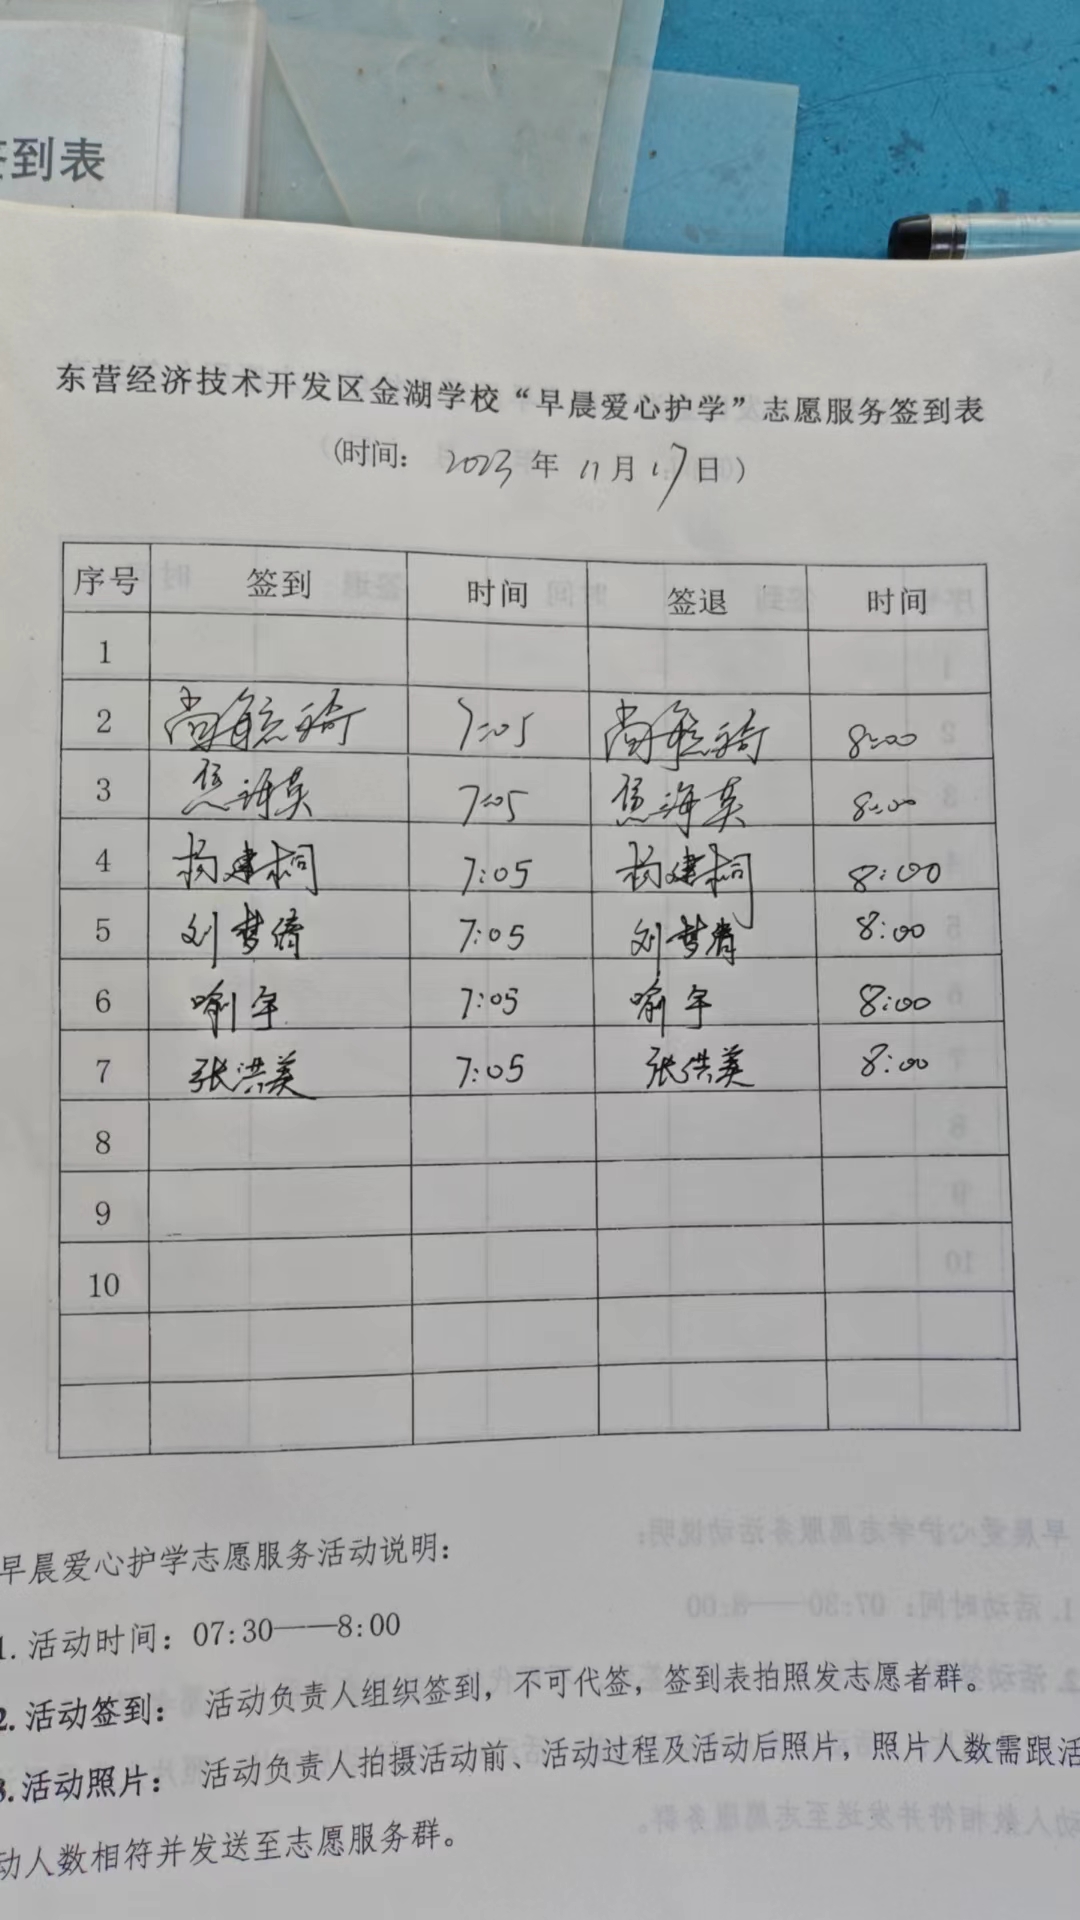 到表
东营经济技术开发区金湖学校“早晨爱心护学”志愿服务签到表
(时间: 2023 年 11 月 17 日)
序号 签到 时间 签退 时间
1
2 7:05 8:00
3 焦海英 7:05 焦海英 8:00
4 杨建桐 7:05 杨建桐 8:00
5 刘梦倩 7:05 刘梦倩 8:00
6 喻宇 7:05 喻宇 8:00
7 张洪美 7:05 张洪美 8:00
8
9
10
早晨爱心护学志愿服务活动说明:
1. 活动时间: 07:30——8:00
2. 活动签到: 活动负责人组织签到, 不可代签, 签到表拍照发志愿者群。
3. 活动照片: 活动负责人拍摄活动前、活动过程及活动后照片, 照片人数需跟活
动人数相符并发送至志愿服务群。